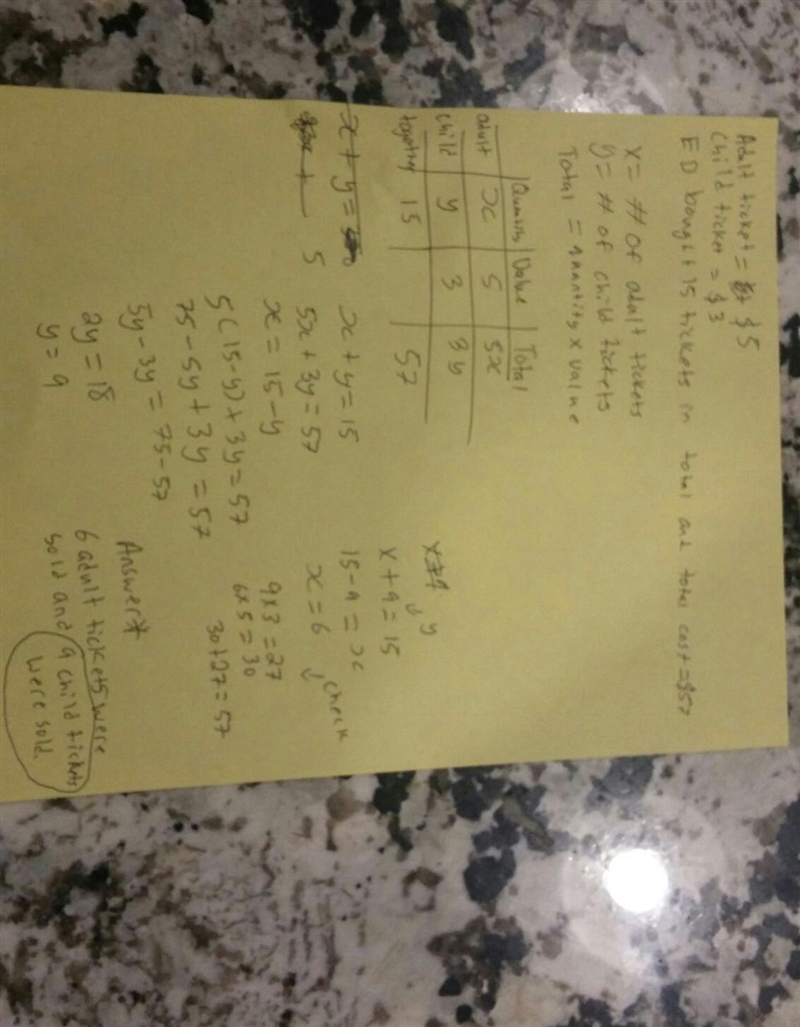 Adult ticket = $5
Child ticket = $3
ED bought 15 tickets in total and total cost = $57
x = # of adult tickets
y = # of child tickets
Total = quantity x value
Quantity Value Total
adult x 5 5x
child y 3 3y
together 15 57
x + y =
5
x + y = 15
5x + 3y = 57
x = 15 - y
5(15-y) + 3y = 57
75 - 5y + 3y = 57
5y - 3y = 75 - 57
2y = 18
y = 9
y
x + 9 = 15
15 - 9 = x
x = 6
check
9 x 3 = 27
6 x 5 = 30
30 + 27 = 57
Answer*
6 adult tickets were
sold and 9 child tickets
were sold.